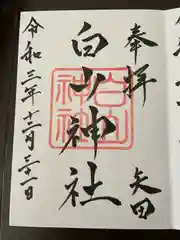 奉拝
矢田
白山神社
白山神社
令和三年十二月三十一日